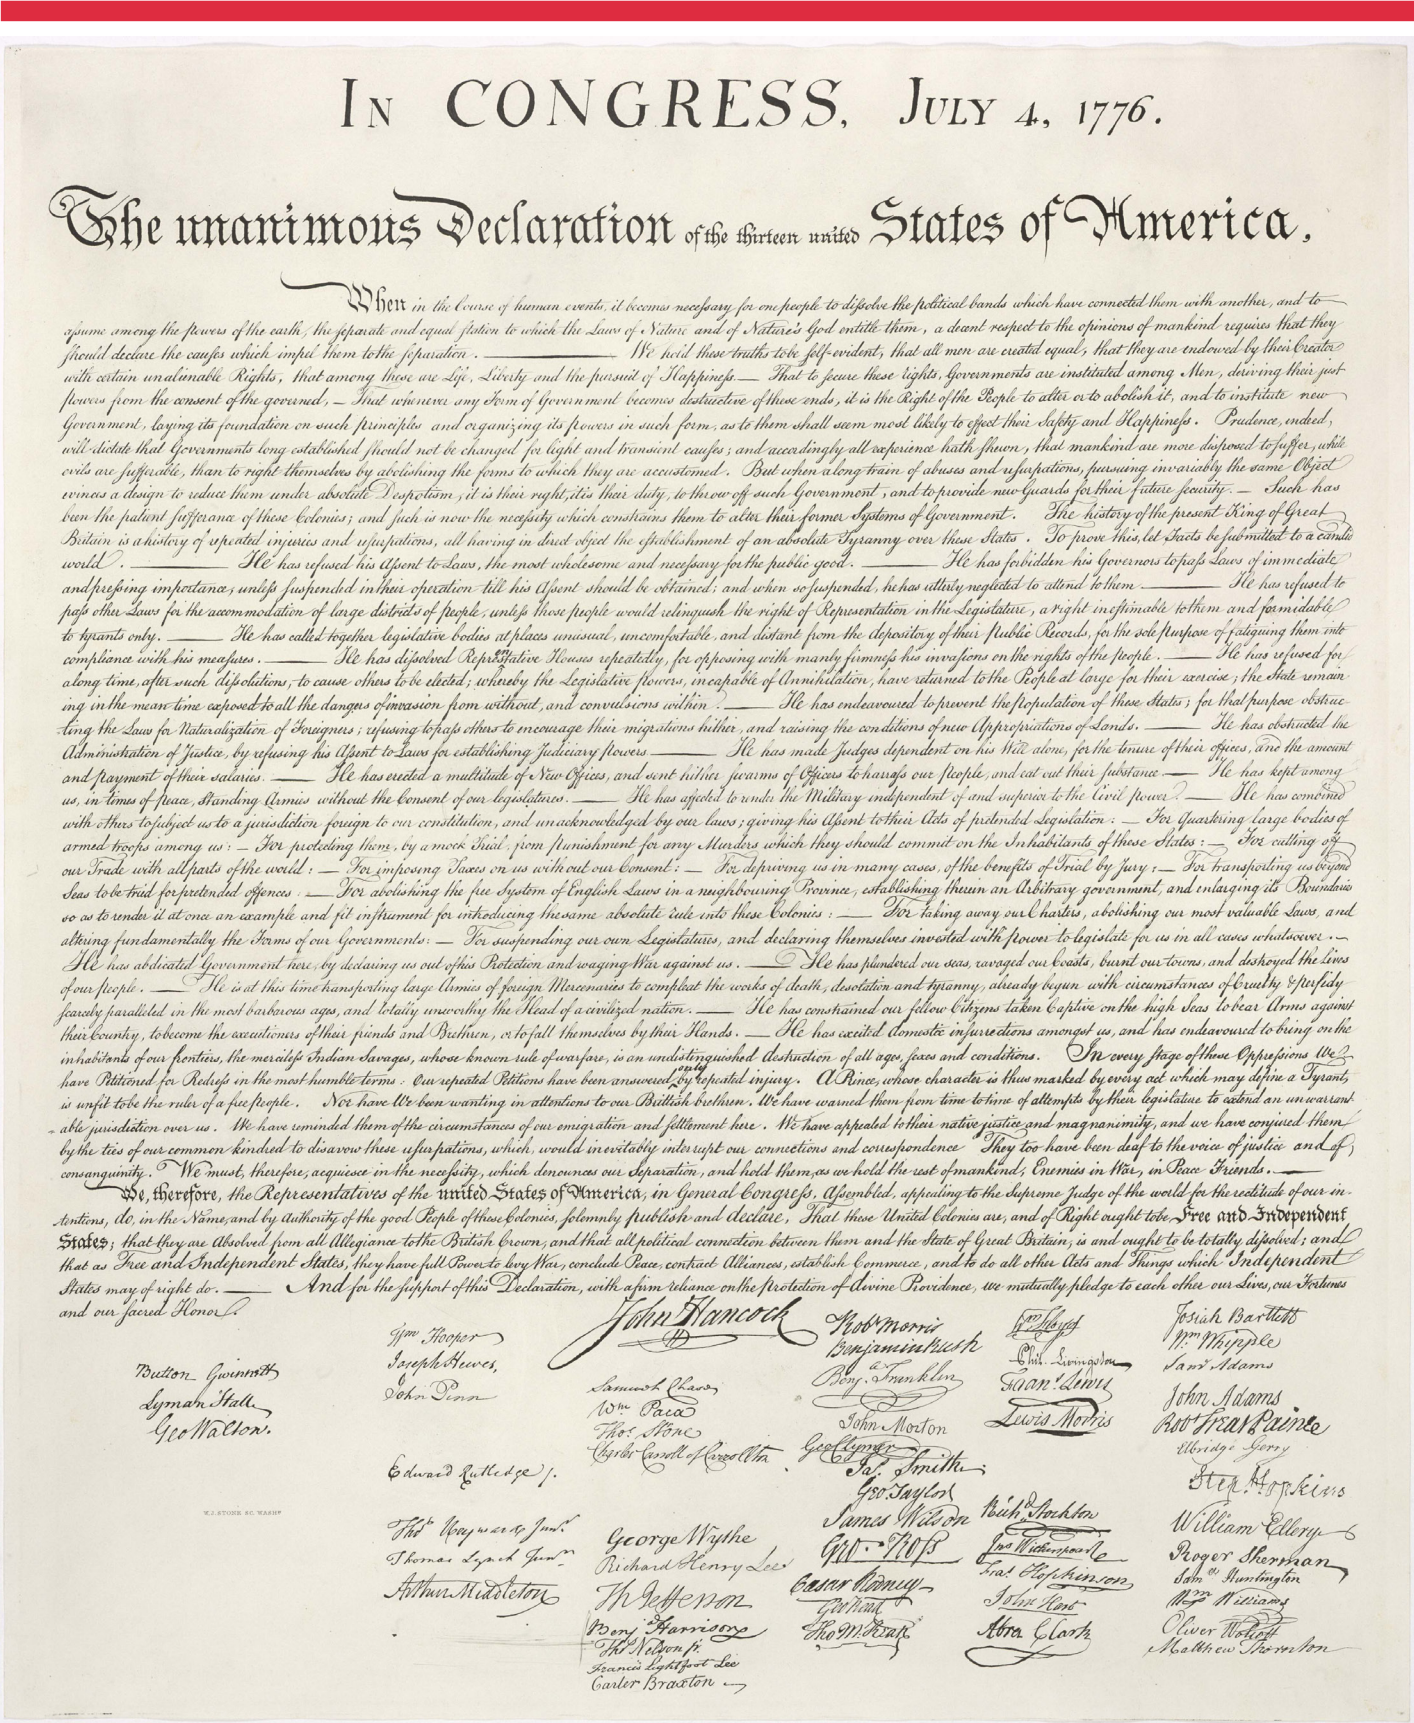 In CONGRESS, July 4, 1776.
The unanimous Declaration of the thirteen united States of America,
When in the Course of human events, it becomes necessary for one people to dissolve the political bands which have connected them with another, and to
assume among the powers of the earth, the separate and equal station to which the Laws of Nature and of Nature's God entitle them, a decent respect to the opinions of mankind requires that they
should declare the causes which impel them to the separation. We hold these truths to be self-evident, that all men are created equal, that they are endowed by their Creator
with certain unalienable Rights, that among these are Life, Liberty and the pursuit of Happiness. — That to secure these rights, Governments are instituted among Men, deriving their just
powers from the consent of the governed, — That whenever any Form of Government becomes destructive of these ends, it is the Right of the People to alter or to abolish it, and to institute new
Government, laying its foundation on such principles and organizing its powers in such form, as to them shall seem most likely to effect their Safety and Happiness. Prudence, indeed,
will dictate that Governments long established should not be changed for light and transient causes; and accordingly all experience hath shewn, that mankind are more disposed to suffer, while
evils are sufferable, than to right themselves by abolishing the forms to which they are accustomed. But when a long train of abuses and usurpations, pursuing invariably the same Object
evinces a design to reduce them under absolute Despotism, it is their right, it is their duty, to throw off such Government, and to provide new Guards for their future security. — Such has
been the patient sufferance of these Colonies; and such is now the necessity which constrains them to alter their former Systems of Government. The history of the present King of Great
Britain is a history of repeated injuries and usurpations, all having in direct object the establishment of an absolute Tyranny over these States. To prove this, let Facts be submitted to a candid
world. He has refused his Assent to Laws, the most wholesome and necessary for the public good. He has forbidden his Governors to pass Laws of immediate
and pressing importance, unless suspended in their operation till his Assent should be obtained; and when so suspended, he has utterly neglected to attend to them. He has refused to
pass other Laws for the accommodation of large districts of people, unless those people would relinquish the right of Representation in the Legislature, a right inestimable to them and formidable
to tyrants only. He has called together legislative bodies at places unusual, uncomfortable, and distant from the depository of their Public Records, for the sole purpose of fatiguing them into
compliance with his measures. He has dissolved Representative Houses repeatedly, for opposing with manly firmness his invasions on the rights of the people. He has refused for
a long time, after such dissolutions, to cause others to be elected; whereby the Legislative powers, incapable of Annihilation, have returned to the People at large for their exercise; the State remain
ing in the mean time exposed to all the dangers of invasion from without, and convulsions within. He has endeavoured to prevent the population of these States; for that purpose obstruc-
ting the Laws for Naturalization of Foreigners; refusing to pass others to encourage their migrations hither, and raising the conditions of new Appropriations of Lands. He has obstructed the
Administration of Justice, by refusing his Assent to Laws for establishing Judiciary powers. He has made Judges dependent on his Will alone, for the tenure of their offices, and the amount
and payment of their salaries. He has erected a multitude of New Offices, and sent hither swarms of Officers to harrass our people, and eat out their substance. He has kept among
us, in times of peace, Standing Armies without the Consent of our legislatures. He has affected to render the Military independent of and superior to the Civil power. He has combined
with others to subject us to a jurisdiction foreign to our constitution, and unacknowledged by our laws; giving his Assent to their Acts of pretended Legislation: — For Quartering large bodies of
armed troops among us: — For protecting them, by a mock Trial, from punishment for any Murders which they should commit on the Inhabitants of these States: — For cutting off
our Trade with all parts of the world: — For imposing Taxes on us without our Consent: — For depriving us in many cases, of the benefits of Trial by Jury: — For transporting us beyond
Seas to be tried for pretended offences — For abolishing the free System of English Laws in a neighbouring Province, establishing therein an Arbitrary government, and enlarging its Boundaries
so as to render it at once an example and fit instrument for introducing the same absolute rule into these Colonies: — For taking away our Charters, abolishing our most valuable Laws, and
altering fundamentally the Forms of our Governments: — For suspending our own Legislatures, and declaring themselves invested with power to legislate for us in all cases whatsoever. —
He has abdicated Government here, by declaring us out of his Protection and waging War against us. He has plundered our seas, ravaged our Coasts, burnt our towns, and destroyed the lives
of our people. He is at this time transporting large Armies of foreign Mercenaries to compleat the works of death, desolation and tyranny, already begun with circumstances of Cruelty & perfidy
scarcely paralleled in the most barbarous ages, and totally unworthy the Head of a civilized nation. He has constrained our fellow Citizens taken Captive on the high Seas to bear Arms against
their Country, to become the executioners of their friends and Brethren, or to fall themselves by their Hands. He has excited domestic insurrections amongst us, and has endeavoured to bring on the
inhabitants of our frontiers, the merciless Indian Savages, whose known rule of warfare, is an undistinguished destruction of all ages, sexes and conditions. In every stage of these Oppressions We
have Petitioned for Redress in the most humble terms: Our repeated Petitions have been answered only by repeated injury. A Prince, whose character is thus marked by every act which may define a Tyrant,
is unfit to be the ruler of a free people. Nor have We been wanting in attentions to our Brittish brethren. We have warned them from time to time of attempts by their legislature to extend an unwarrant
-able jurisdiction over us. We have reminded them of the circumstances of our emigration and settlement here. We have appealed to their native justice and magnanimity, and we have conjured them
by the ties of our common kindred to disavow these usurpations, which, would inevitably interrupt our connections and correspondence They too have been deaf to the voice of justice and of
consanguinity. We must, therefore, acquiesce in the necessity, which denounces our Separation, and hold them, as we hold the rest of mankind, Enemies in War, in Peace Friends.
We, therefore, the Representatives of the united States of America, in General Congress, Assembled, appealing to the Supreme Judge of the world for the rectitude of our in-
tentions, do, in the Name, and by Authority of the good People of these Colonies, solemnly publish and declare, That these United Colonies are, and of Right ought to be Free and Independent
States; that they are Absolved from all Allegiance to the British Crown, and that all political connection between them and the State of Great Britain, is and ought to be totally dissolved; and
that as Free and Independent States, they have full Power to levy War, conclude Peace, contract Alliances, establish Commerce, and to do all other Acts and Things which Independent
States may of right do. And for the support of this Declaration, with a firm reliance on the protection of divine Providence, we mutually pledge to each other our Lives, our Fortunes
and our sacred Honor.
Button Gwinnett
Lyman Hall
Geo Walton.
W.J. STONE SC. WASHN
Wm Hooper
Joseph Hewes,
John Penn
Edward Rutledge /.
Thos Heyward Junr.
Thomas Lynch Junr.
Arthur Middleton
John Hancock
Samuel Chase
Wm Paca
Thos Stone
Charles Carroll of Carrollton
George Wythe
Richard Henry Lee
Th Jefferson
Benj Harrison
Thos Nelson jr.
Francis Lightfoot Lee
Carter Braxton
Robt Morris
Benjamin Rush
Benj. Franklin
John Morton
Geo Clymer
Jas. Smith
Geo. Taylor
James Wilson
Geo. Ross
Caesar Rodney
Geo Read
Tho M:Kean
Wm Floyd
Phil. Livingston
Frans. Lewis
Lewis Morris
Richd. Stockton
Jno Witherspoon
Fras. Hopkinson
John Hart
Abra Clark
Josiah Bartlett
Wm Whipple
Saml Adams
John Adams
Robt Treat Paine
Elbridge Gerry
Step. Hopkins
William Ellery
Roger Sherman
Saml Huntington
Wm Williams
Oliver Wolcott
Matthew Thornton